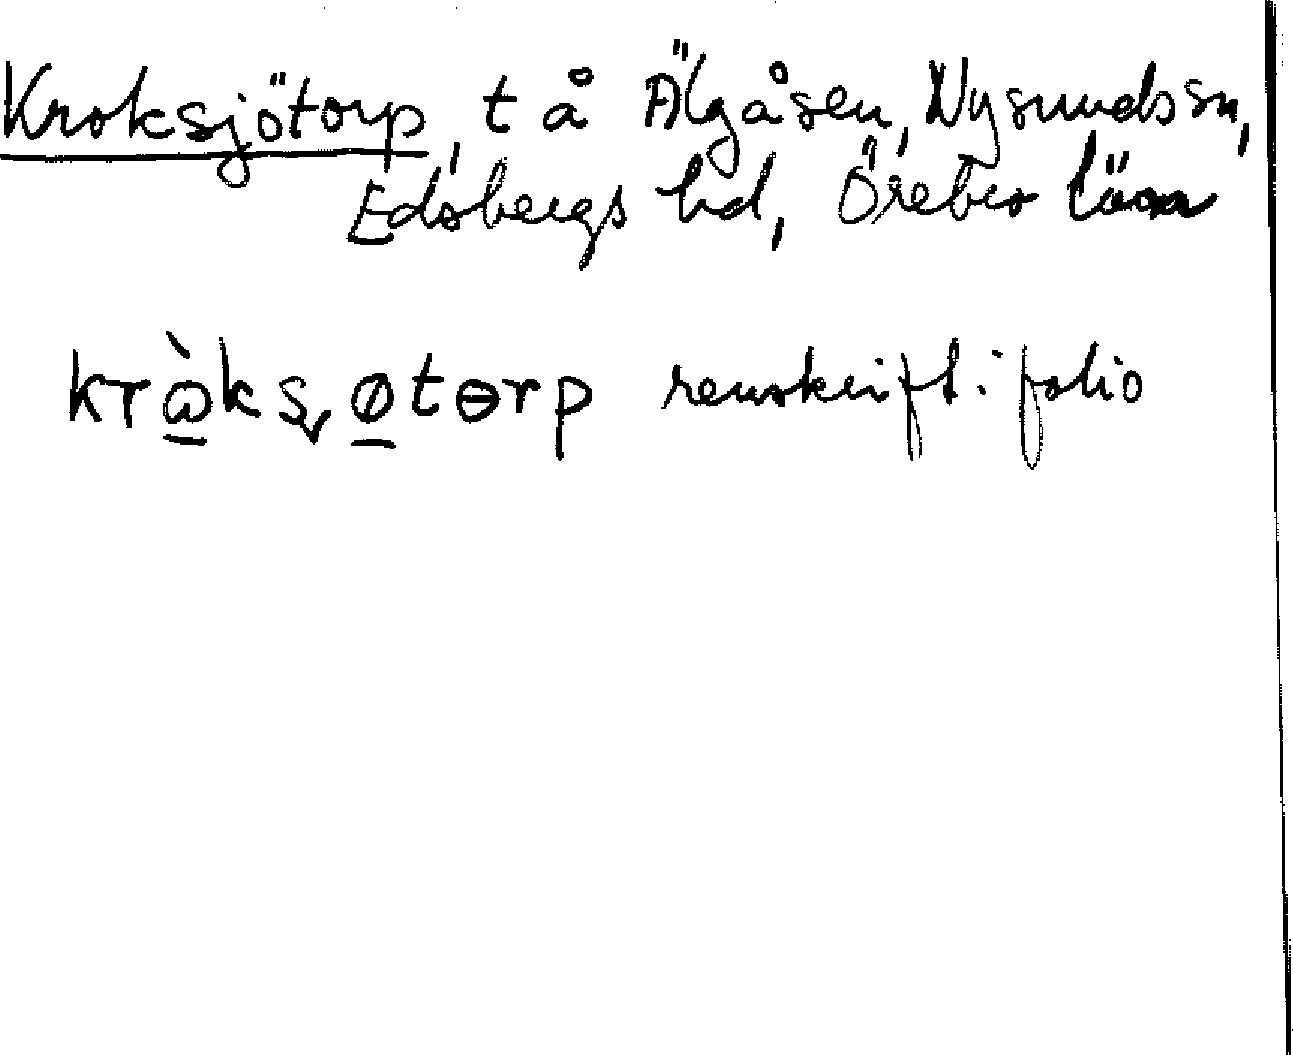 Kroksjötorp, t å Älgåsen, Nysundssn,
Edsbergs hd, Örebro län
renskrift i folio